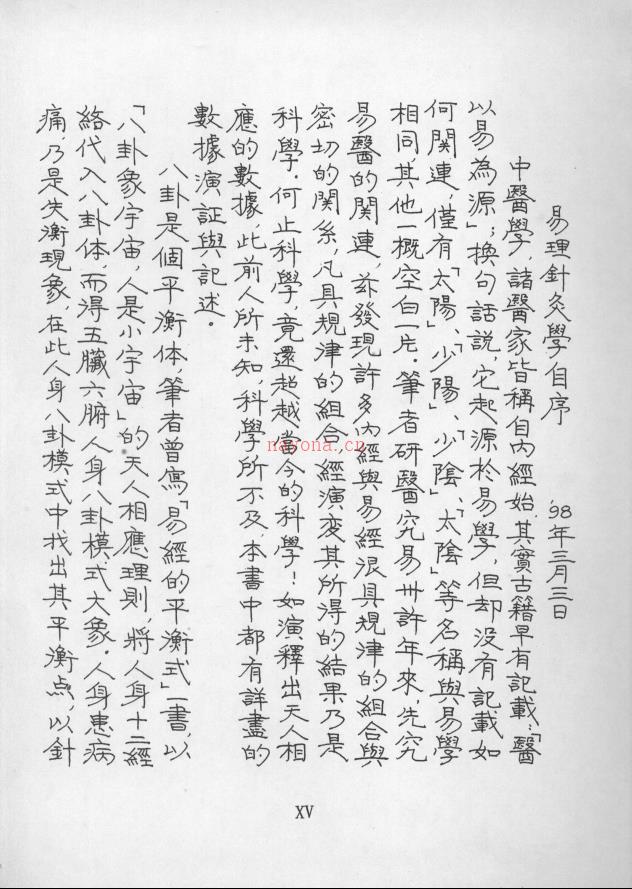 易理針灸學自序
'98年三月三日
中醫學，諸醫家皆稱自內經始，其實古籍早有記載：「醫
以易為源」；換句話說，它起源於易學，但却没有記載如
何關連，僅有「太陽」、「少陽」、「少陰」、「太陰」等名稱與易學
相同，其他一概空白一片。筆者研醫究易卅許年來，洗究
易醫的關連，茲發現許多內經與易經很具規律的組合與
密切的關係，凡具規律的組合，經演变其所得的結果乃是
科學。何止科學，竟還超越當今的科學！如演釋出天人相
應的數據，此前人所未知，科學所不及，本書中都有詳盡的
數據演証與記述。
八卦是個平衡体，筆者曾寫「易經的平衡式」一書，以
「八卦象宇宙，人是小宇宙」的天人相應理則，將人身十二經
絡代入八卦体，而得五臟六腑人身八卦模式大象。人身患病
痛乃是失衡現象，在此人身八卦模式中找出其平衡点，以針
nayona.cn
XV